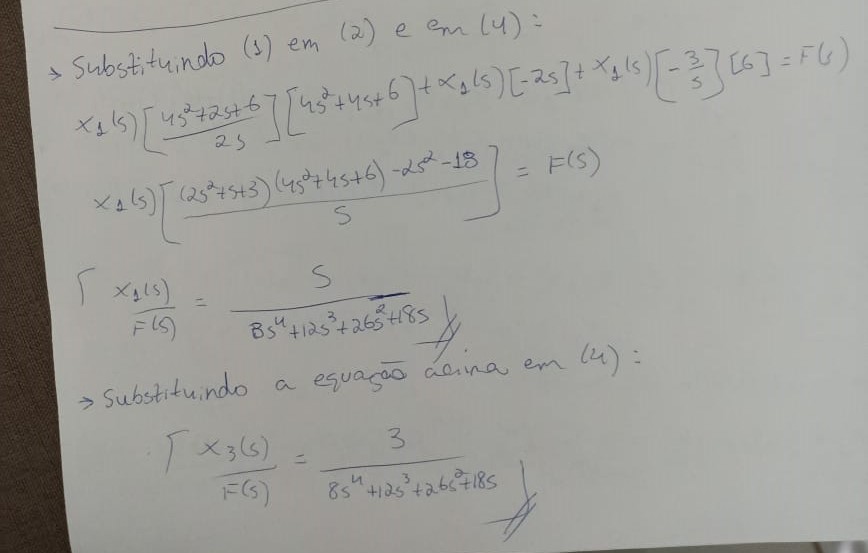 → Substituindo (1) em (2) e em (4) :
X₁(s) [4s²+2s+6 / 2s] [4s²+4s+6] + X₁(s) [-2s] + X₁(s) [-3/s] [6] = F(s)
X₁(s) [(2s²+s+3)(4s²+4s+6) -2s² -18 / s] = F(s)
X₁(s) / F(s) = s / 8s⁴+12s³+26s²+18s
→ Substituindo a equação acima em (4) :
X₃(s) / F(s) = 3 / 8s⁴+12s³+26s²+18s